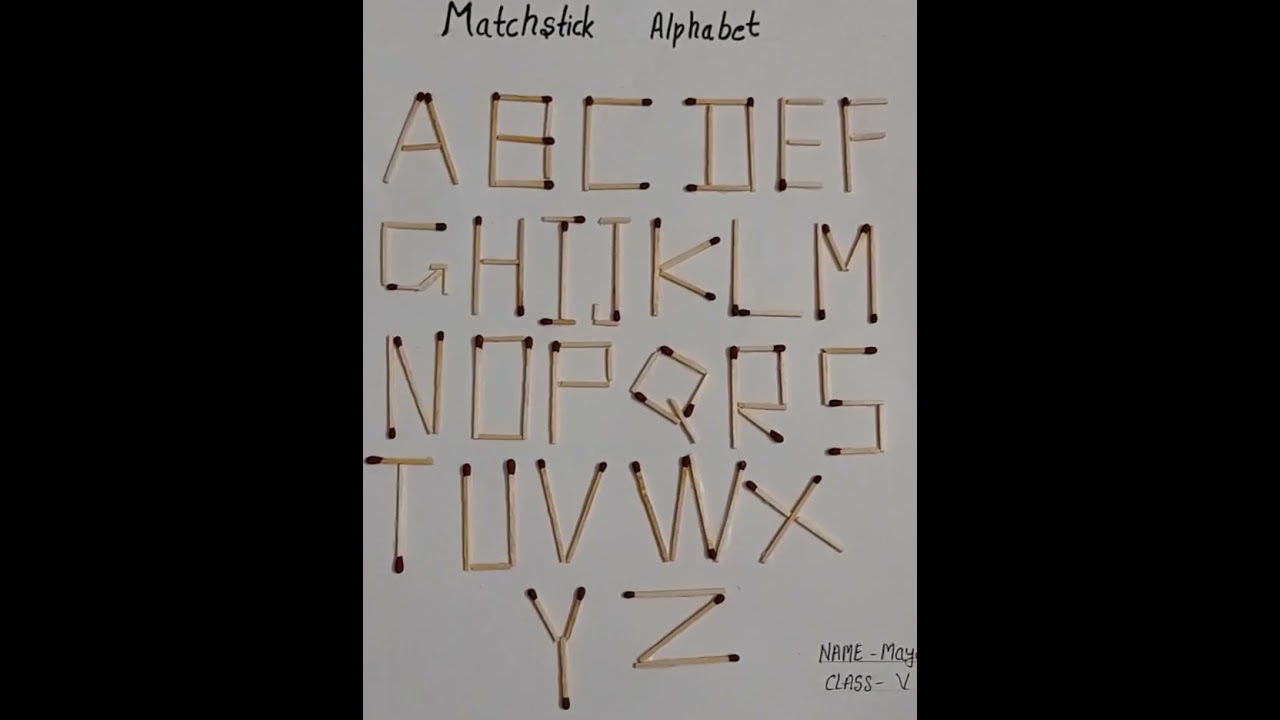 Matchstick Alphabet
A B C D E F
G H I J K L M
N O P Q R S
T U V W X
Y Z
NAME - May
CLASS - V